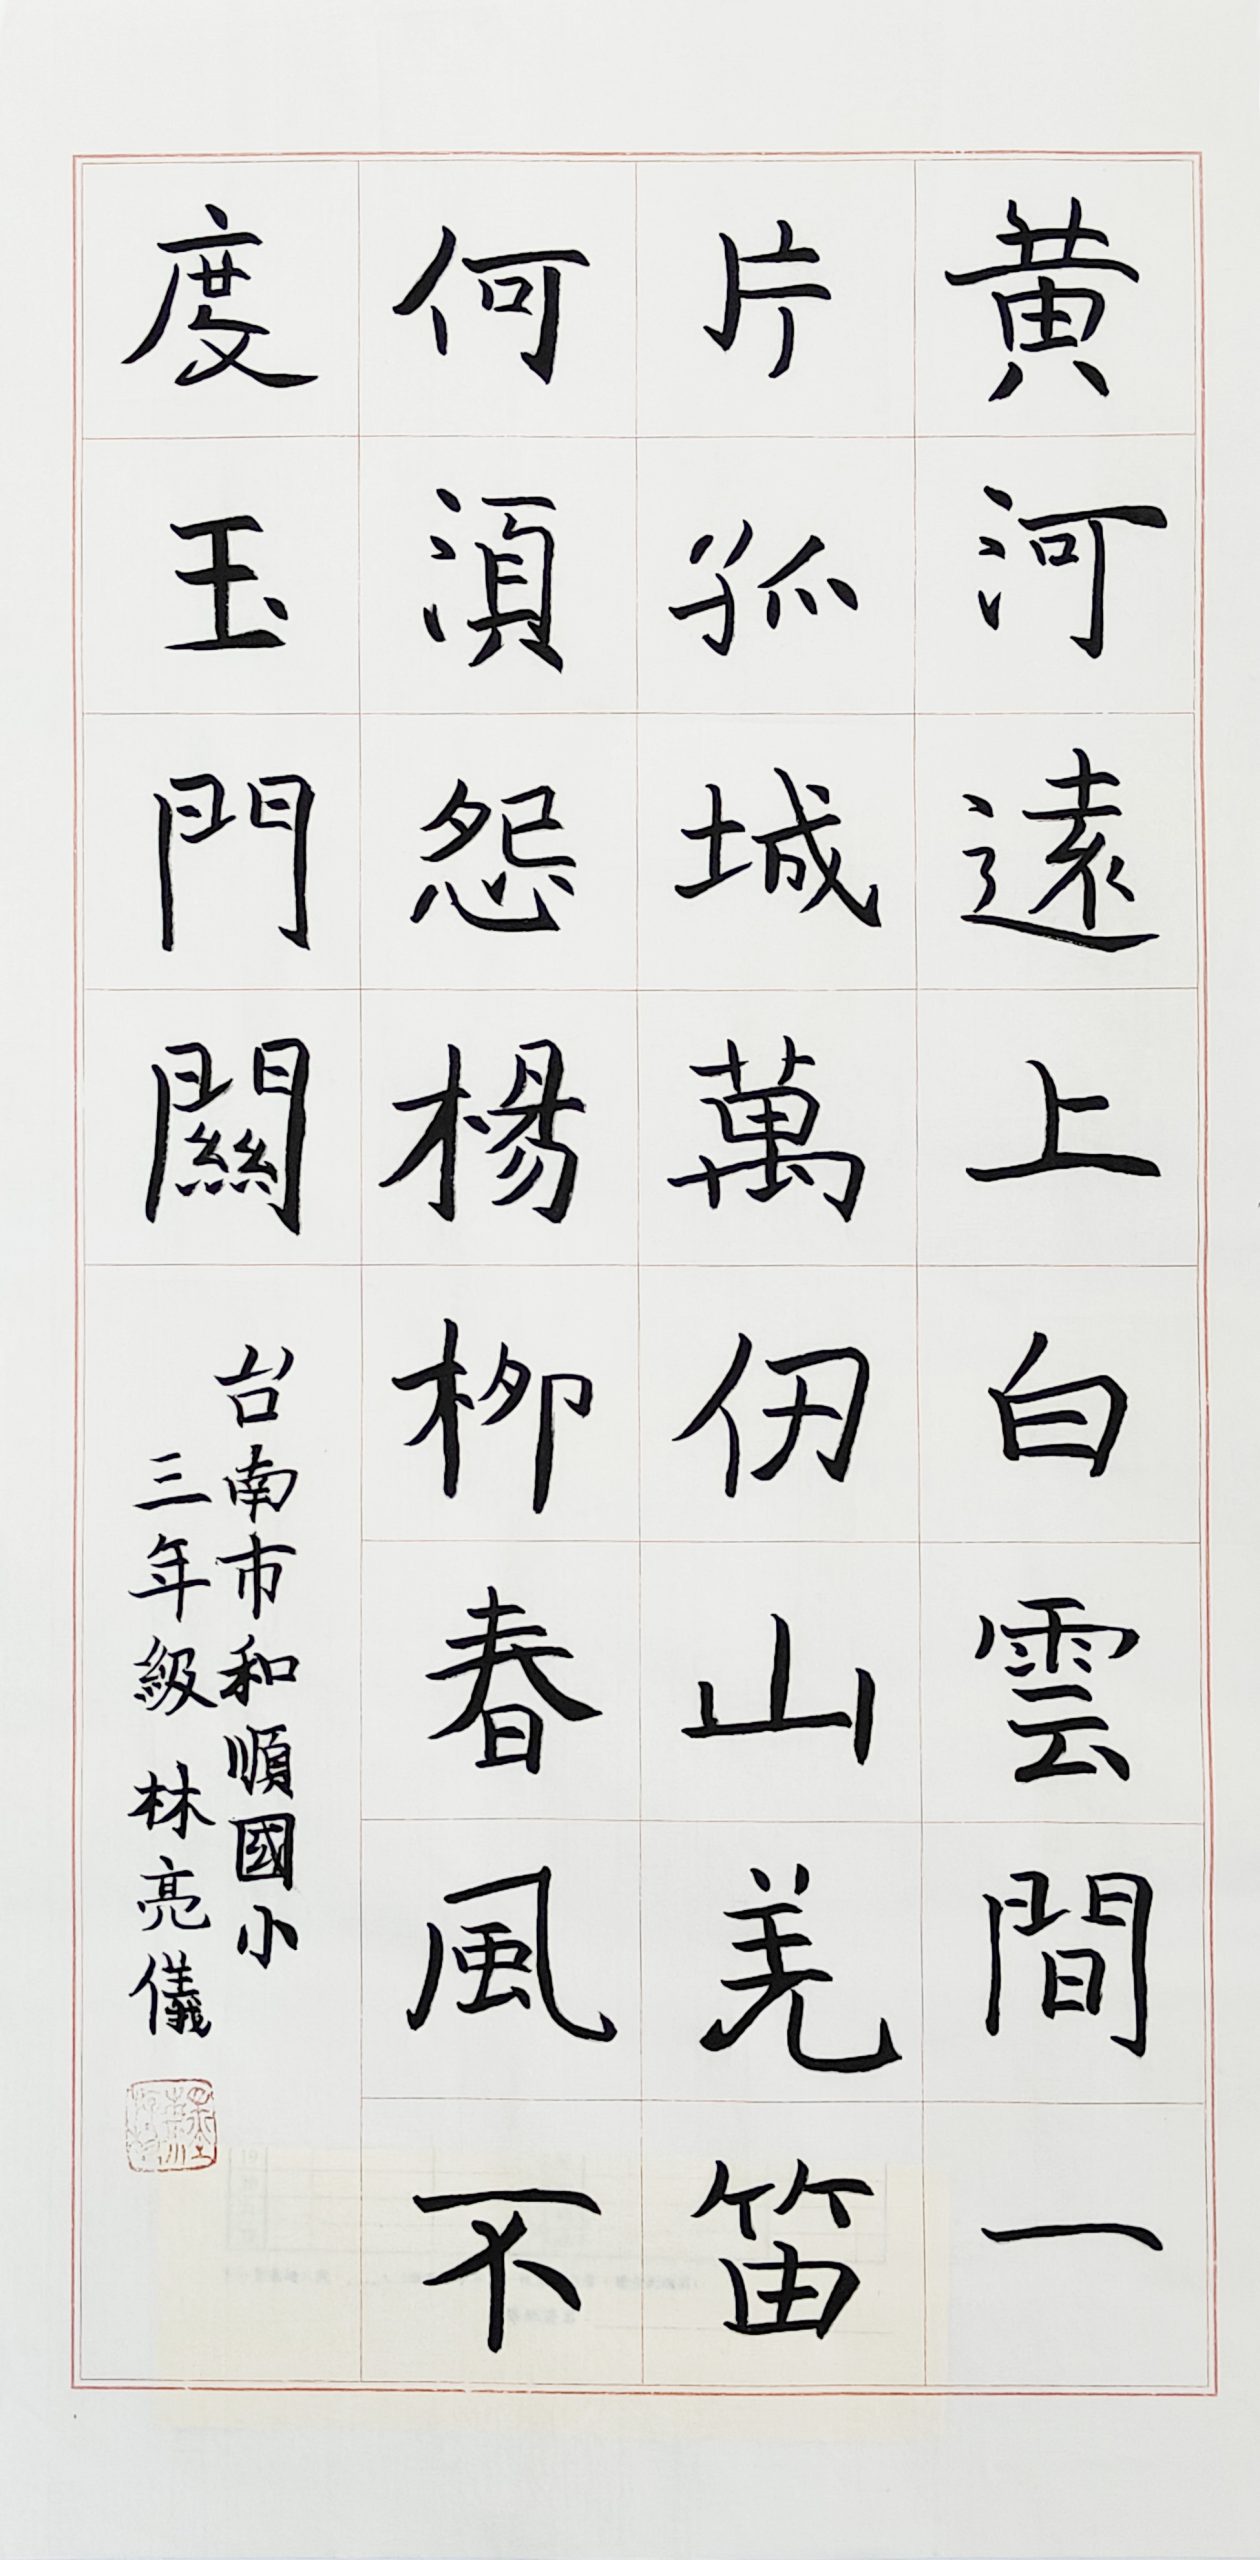 黄河遠上白雲間一
片孤城萬仞山羌笛
何須怨楊柳春風不
度玉門關
台南市和順國小
三年級 林亮儀